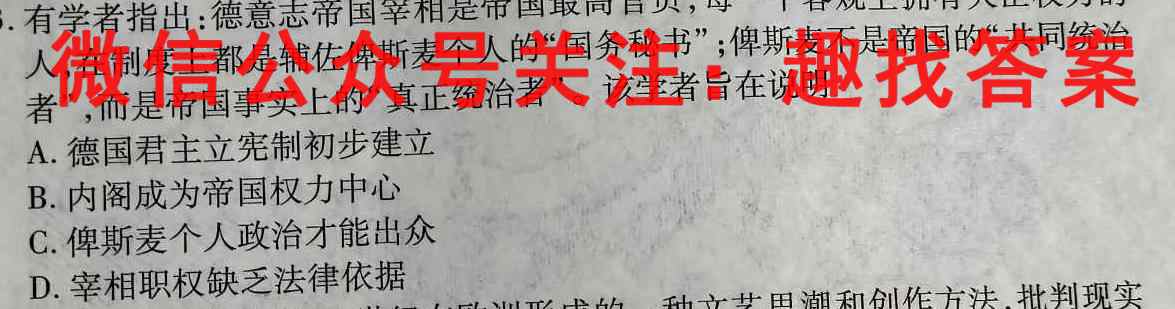 有学者指出:德意志帝国宰相是帝国最高官员,每一个客观上拥有大臣权力的
人,在制度上都是辅佐俾斯麦个人的“国务秘书”;俾斯麦不是帝国的“共同统治
者”,而是帝国事实上的“真正统治者”。该学者旨在说明
微信公众号关注:趣找答案
A. 德国君主立宪制初步建立
B. 内阁成为帝国权力中心
C. 俾斯麦个人政治才能出众
D. 宰相职权缺乏法律依据
在欧洲形成的一种文艺思潮和创作方法,批判现实